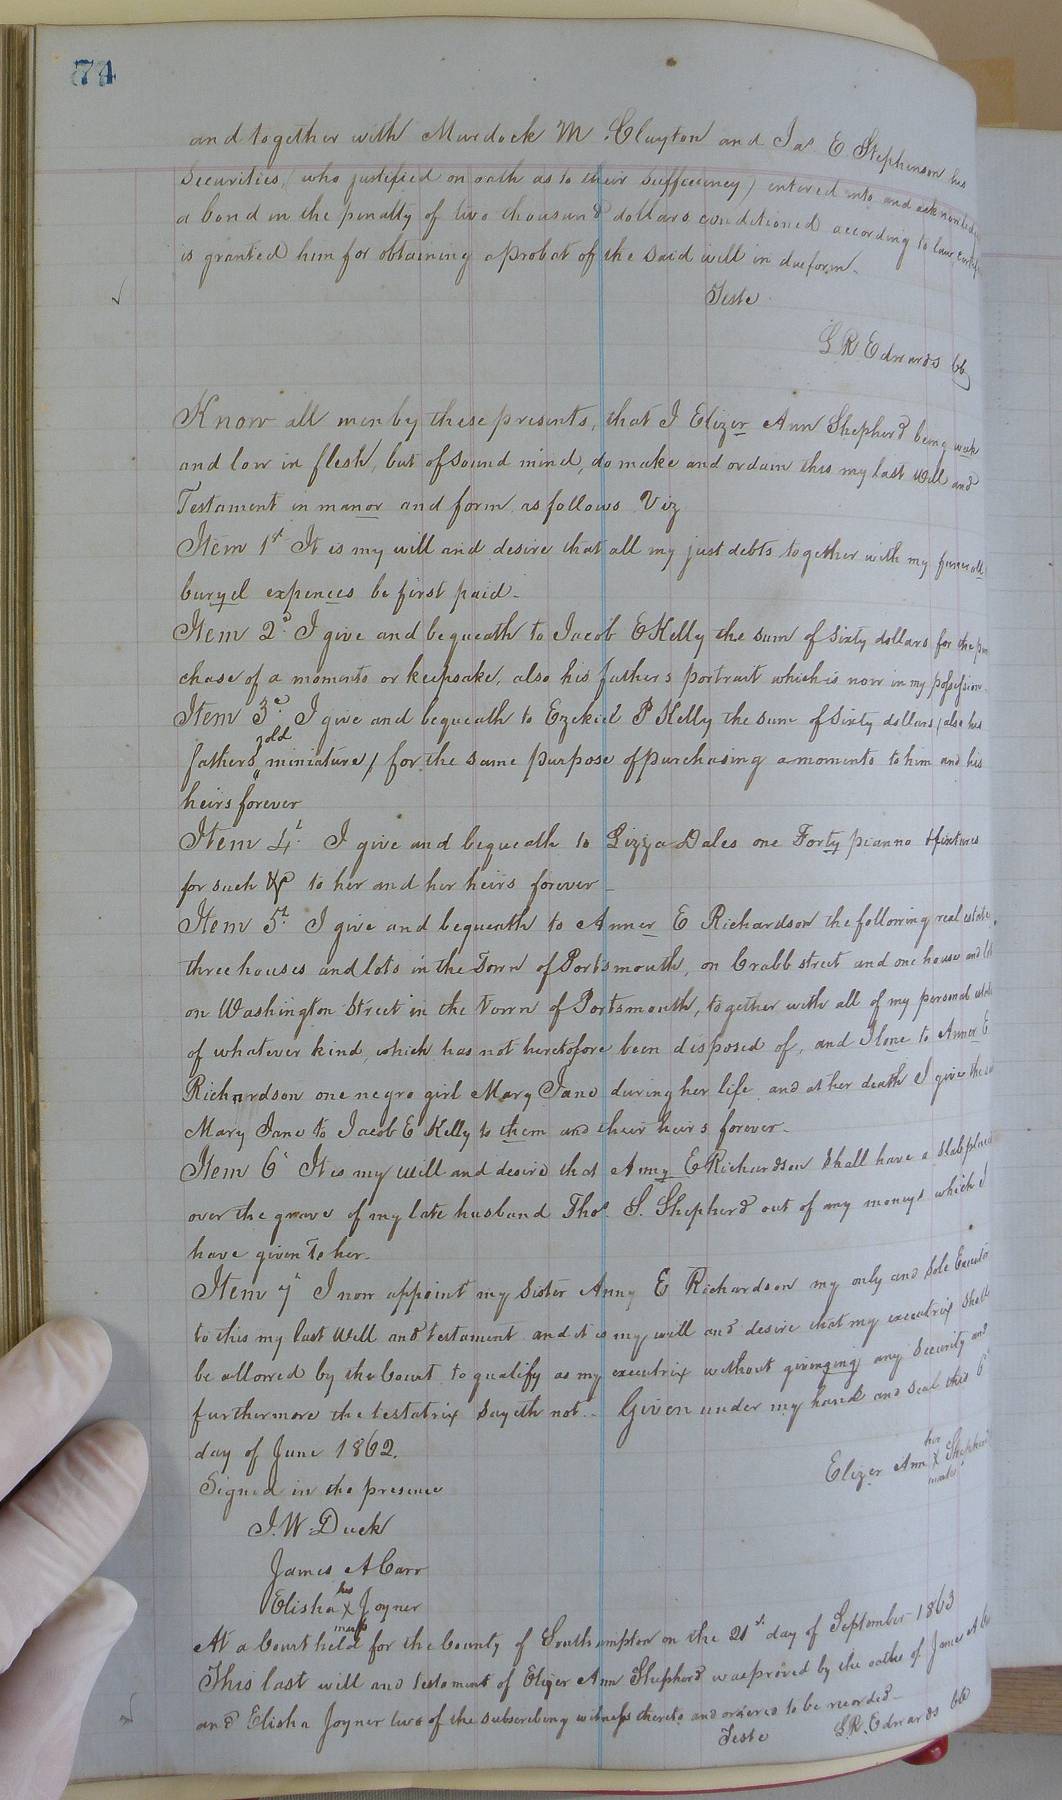 74
and together with Murdock M. Clayton and Jas. E Stephenson his
Securities, (who justified on oath as to their sufficiency) entered into and acknowledged
a bond in the penalty of two thousand dollars conditioned according to law,
is granted him for obtaining a probat of the said will in due form.
Teste
L R Edwards CC
Know all men by these presents, that I Elizer Ann Shepherd being weak
and low in flesh, but of sound mind, do make and ordain this my last Will and
Testament in manor and form as follows Viz
Item 1st It is my will and desire that all my just debts together with my funerall
buryel expences be first paid.
Item 2d. I give and bequeath to Jacob E Kelly the sum of sixty dollars for the pur
chase of a momento or keepsake, also his fathers portrait which is now in my possession.
Item 3d. I give and bequeath to Ezekiel P Kelly the sum of sixty dollars, (also his
gold
fathers miniature) for the same purpose of purchasing a momento to him and his
heirs forever
Item 4t. I give and bequeath to Lizza Dales one Forty pianno & fixtures
for such &c to her and her heirs forever
Item 5t. I give and bequeath to Anner E Richardson the following real estate,
three houses and lots in the Town of Portsmouth, on Crabb street and one house and lot
on Washington Street in the town of Portsmouth, together with all of my personal estate
of whatever kind, which has not heretofore been disposed of, and I lone to Anner E
Richardson one negro girl Mary Jane during her life, and at her death I give the
Mary Jane to Jacob E Kelly to them and their heirs forever.
Item 6t It is my will and desire that Anny E Richardson shall have a slab placed
over the grave of my late husband Thos. S. Shepherd out of any moneys which I
have given to her.
Item 7t I now appoint my sister Anny E Richardson my only and sole Executor
to this my last Will and testament and it is my will and desire that my executrix shall
be allowed by the Court to qualify as my executrix without givinging any security and
furthermore the testatrix sayeth not. Given under my hand and seal this 6th
day of June 1862.
her
Elizer Ann X Shepherd
mark
Signed in the presence
J. W. Duck
James A Carr
his
Elisha X Joyner
mark
At a Court held for the County of Southampton on the 21st. day of September 1863
This last will and testament of Elizer Ann Shepherd was proved by the oaths of Jame A Carr
and Elisha Joyner two of the subscribing witness thereto and ordered to be recorded.
Teste L. R. Edwards CC